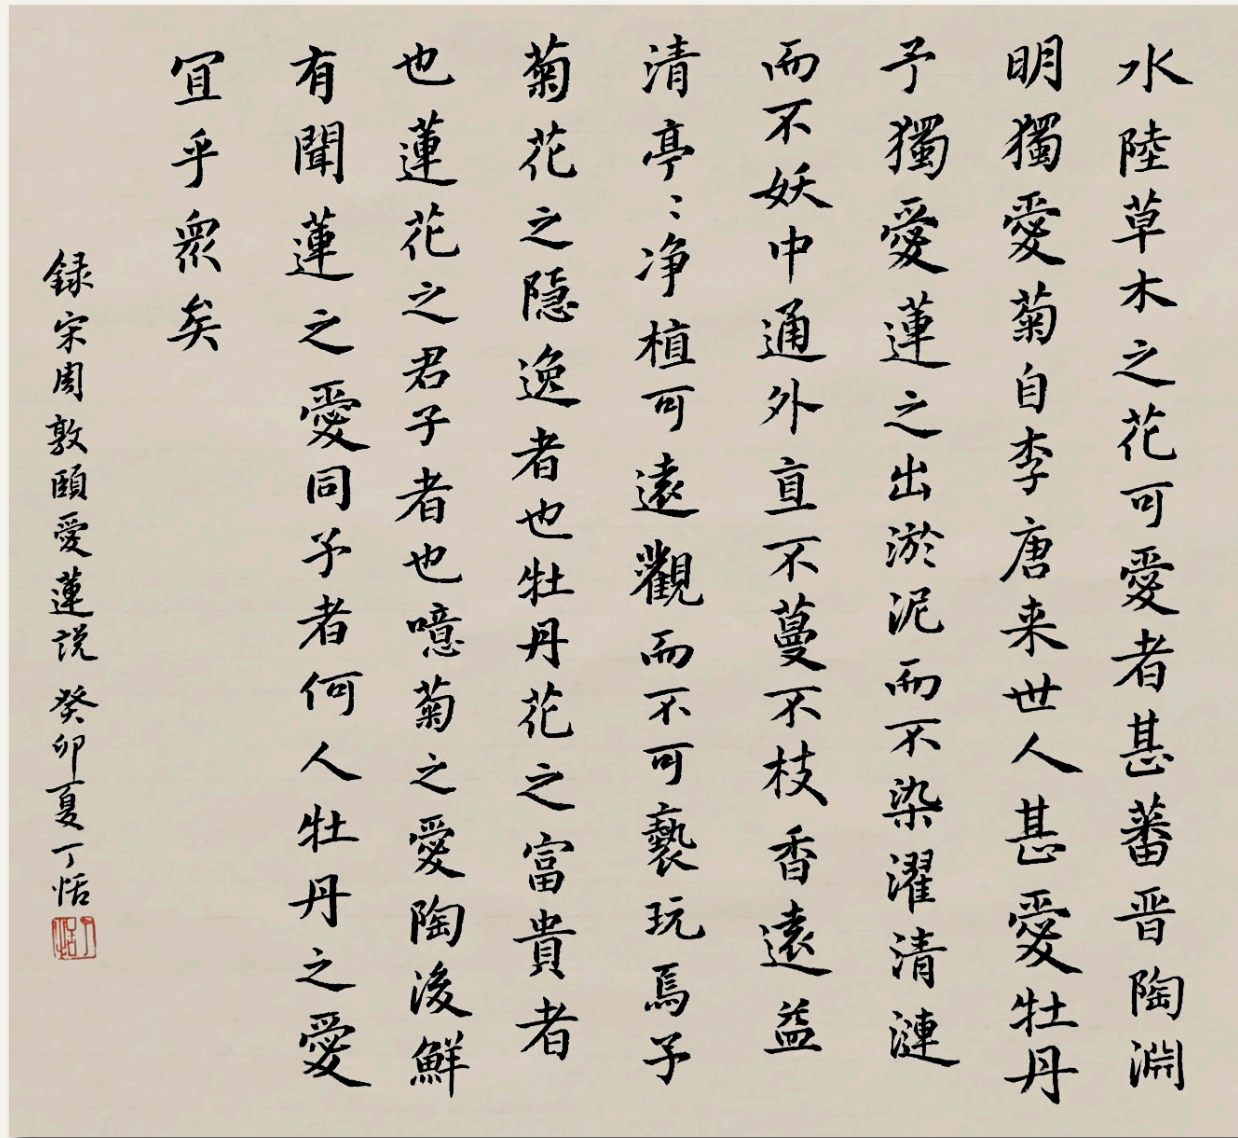 水陸草木之花可愛者甚蕃晋陶淵
明獨愛菊自李唐来世人甚愛牡丹
予獨愛蓮之出淤泥而不染濯清漣
而不妖中通外直不蔓不枝香遠益
清亭〻净植可遠觀而不可褻玩焉予
菊花之隱逸者也牡丹花之富貴者
也蓮花之君子者也噫菊之愛陶後鮮
有聞蓮之愛同予者何人牡丹之愛
宜乎衆矣
録宋周敦頤愛蓮説 癸卯夏丁恬
丁恬